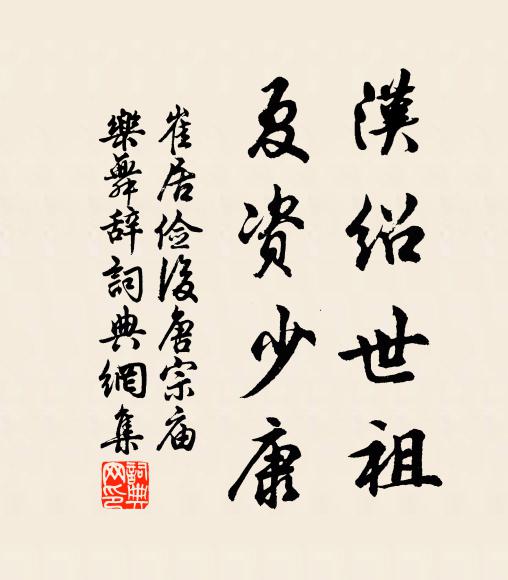 漢绍世祖
夏资少康
崔居儉後唐宗庙
樂舞辞詞典網集
詞典网印